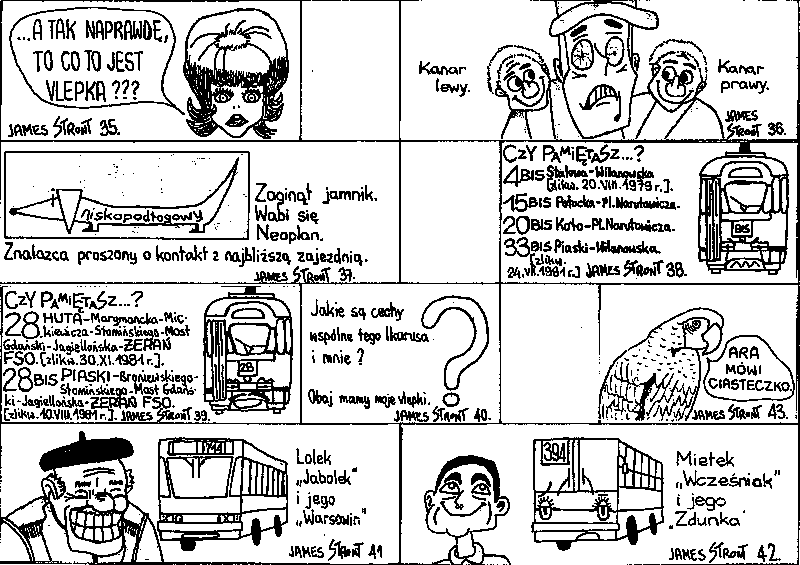 ...A TAK NAPRAWDĘ,
TO CO TO JEST
VLEPKA ???
JAMES STRONT 35.
Kanar
lewy.
Kanar
prawy.
JAMES
STRONT 36.
niskopodłogowy
Zaginął jamnik.
Wabi się
Neoplan.
Znalazca proszony o kontakt z najbliższą zajezdnią.
JAMES STRONT 37.
CZY PAMIĘTASZ...?
4BIS Stalowa-Wilanowska
[zlikw. 20.VIII.1979 r.].
15BIS Potocka-Pl.Narutowicza.
20BIS Koło-Pl.Narutowicza.
33BIS Piaski-Wilanowska.
[zlikw.
24.VIII.1981 r.] JAMES STRONT 38.
BIS
CZY PAMIĘTASZ...?
28 HUTA-Marymoncka-Mic-
kiewicza-Słomińskiego-Most
Gdański-Jagiellońska-ŻERAŃ
FSO. [zlikw. 30.XI.1981 r.].
28BIS PIASKI-Broniewskiego-
Słomińskiego-Most Gdańs-
ki-Jagiellońska-ŻERAŃ FSO.
[zlikw. 10.VIII.1981 r.]. JAMES STRONT 39.
28
Jakie są cechy
wspólne tego Ikarusa
i mnie ?
Obaj mamy moje vlepki.
JAMES STRONT 40.
ARA
MÓWI
CIASTECZKO.
JAMES STRONT 43.
1744
Lolek
„Jabolek"
i jego
„Warsawin"
JAMES STRONT 41
394
Mietek
„Wcześniak"
i jego
„Zdunka"
JAMES STRONT 42.